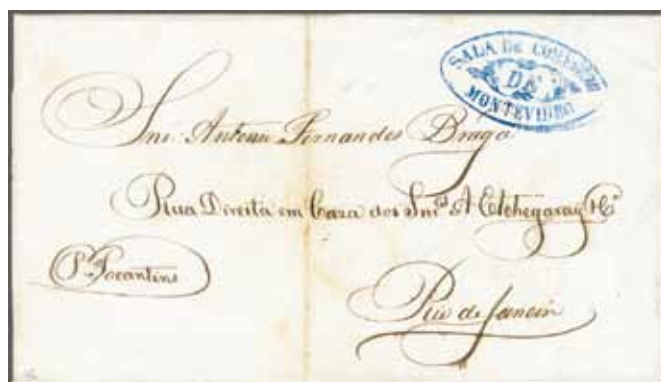 SALA DE COMERCIO
DE
MONTEVIDEO
Snr. Antonio Fernandes Braga
Rua Direita em Caza dos Snres A Etchegaray & Ca
P. Tocantins
Rio de Janeiro